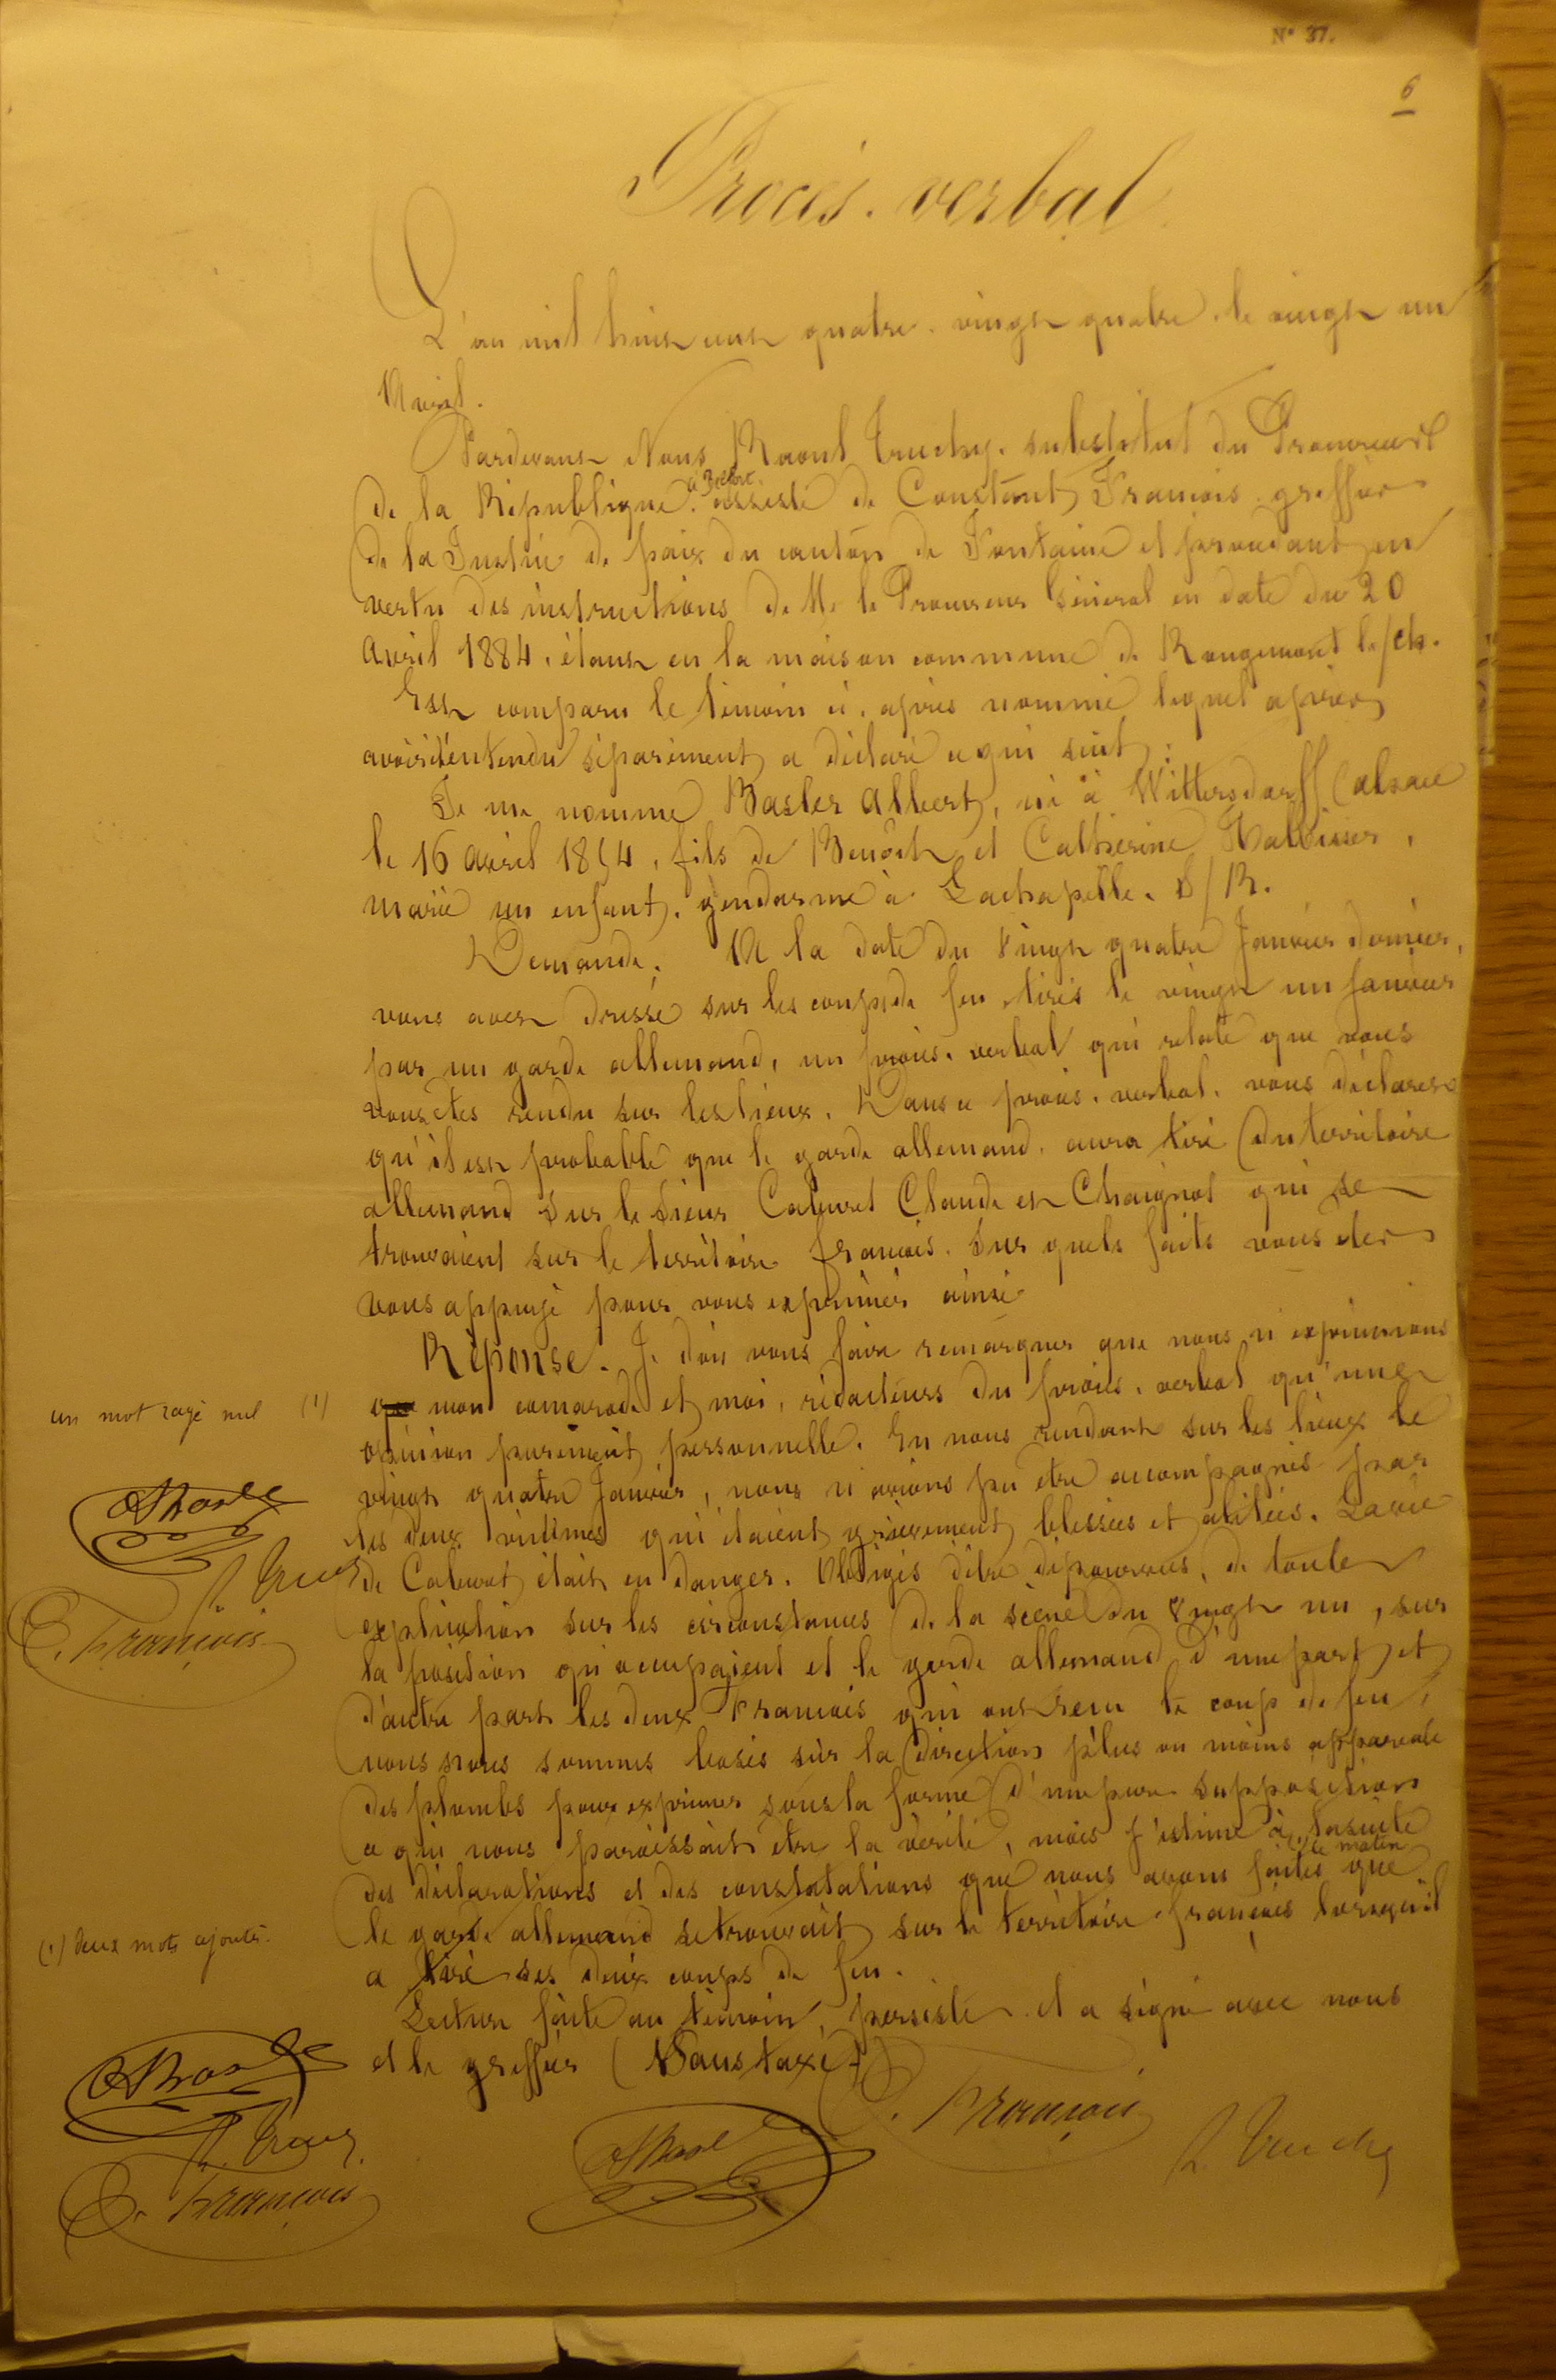 N° 37.
6
Procès-verbal
L'an mil huit cent quatre-vingt quatre le vingt un
Avril.
Pardevant Nous Raoul Truchy, substitut du Procureur
à Belfort
de la République, assisté de Constant François greffier
de la Justice de paix du canton de Fontaine et procédant en
vertu des instructions de M. le Procureur Général en date du 20
avril 1884, étant en la maison commune de Rougemont le/ch.
Est comparu le témoin ci-après nommé lequel après
avoir été entendu séparément a déclaré ce qui suit :
Je me nomme Basler Albert, né à Wittersdorff (alsace
le 16 avril 1854, fils de Benoit et Catherine,
marié un enfant, gendarme à Lachapelle S/R.
Demande. A la date du vingt quatre Janvier dernier,
vous avez dressé sur les coups de feu tirés le vingt un janvier
par un garde allemand, un procès-verbal qui relate que vous
vous êtes rendu sur les lieux. Dans ce procès-verbal, vous déclarez
qu'il est probable que le garde allemand, aura tiré du territoire
allemand sur le sieur Calevet Claude et Chaignot qui se
trouvaient sur le territoire français. Sur quels faits vous êtes
vous appuyé pour vous exprimer ainsi
Réponse. Je dois vous faire remarquer que nous n'exprimions
un mot rayé nul (1)
que mon camarade et moi, rédacteurs du procès-verbal qu'une
opinion purement personnelle. En nous rendant sur les lieux le
vingt quatre Janvier, nous n'avions pu être accompagnés par
les deux victimes qui étaient grièvement blessées et alitées. La vie
de Calevet était en danger. Obligés d'être dépourvus, de toute
explication sur les circonstances de la scène du vingt un, sur
la position qu'occupaient et le garde allemand d'une part et
d'autre part les deux Français qui ont reçu le coup de feu,
nous nous sommes basés sur la direction plus ou moins apparente
des plombs pour exprimer sous la forme d'une pure supposition
ce qui nous paraissait être la vérité, mais j'estime à la suite
(1) ce matin
des déclarations et des constatations que nous avons faites que
le garde allemand se trouvait sur le territoire français lorsqu'il
(1) deux mots ajoutés.
a tiré ses deux coups de feu.
Lecture faite au témoin, persiste et a signé avec nous
et le greffier (Sans taxe)
C. François
R. Truchy
C. François
R. Truchy
C. François